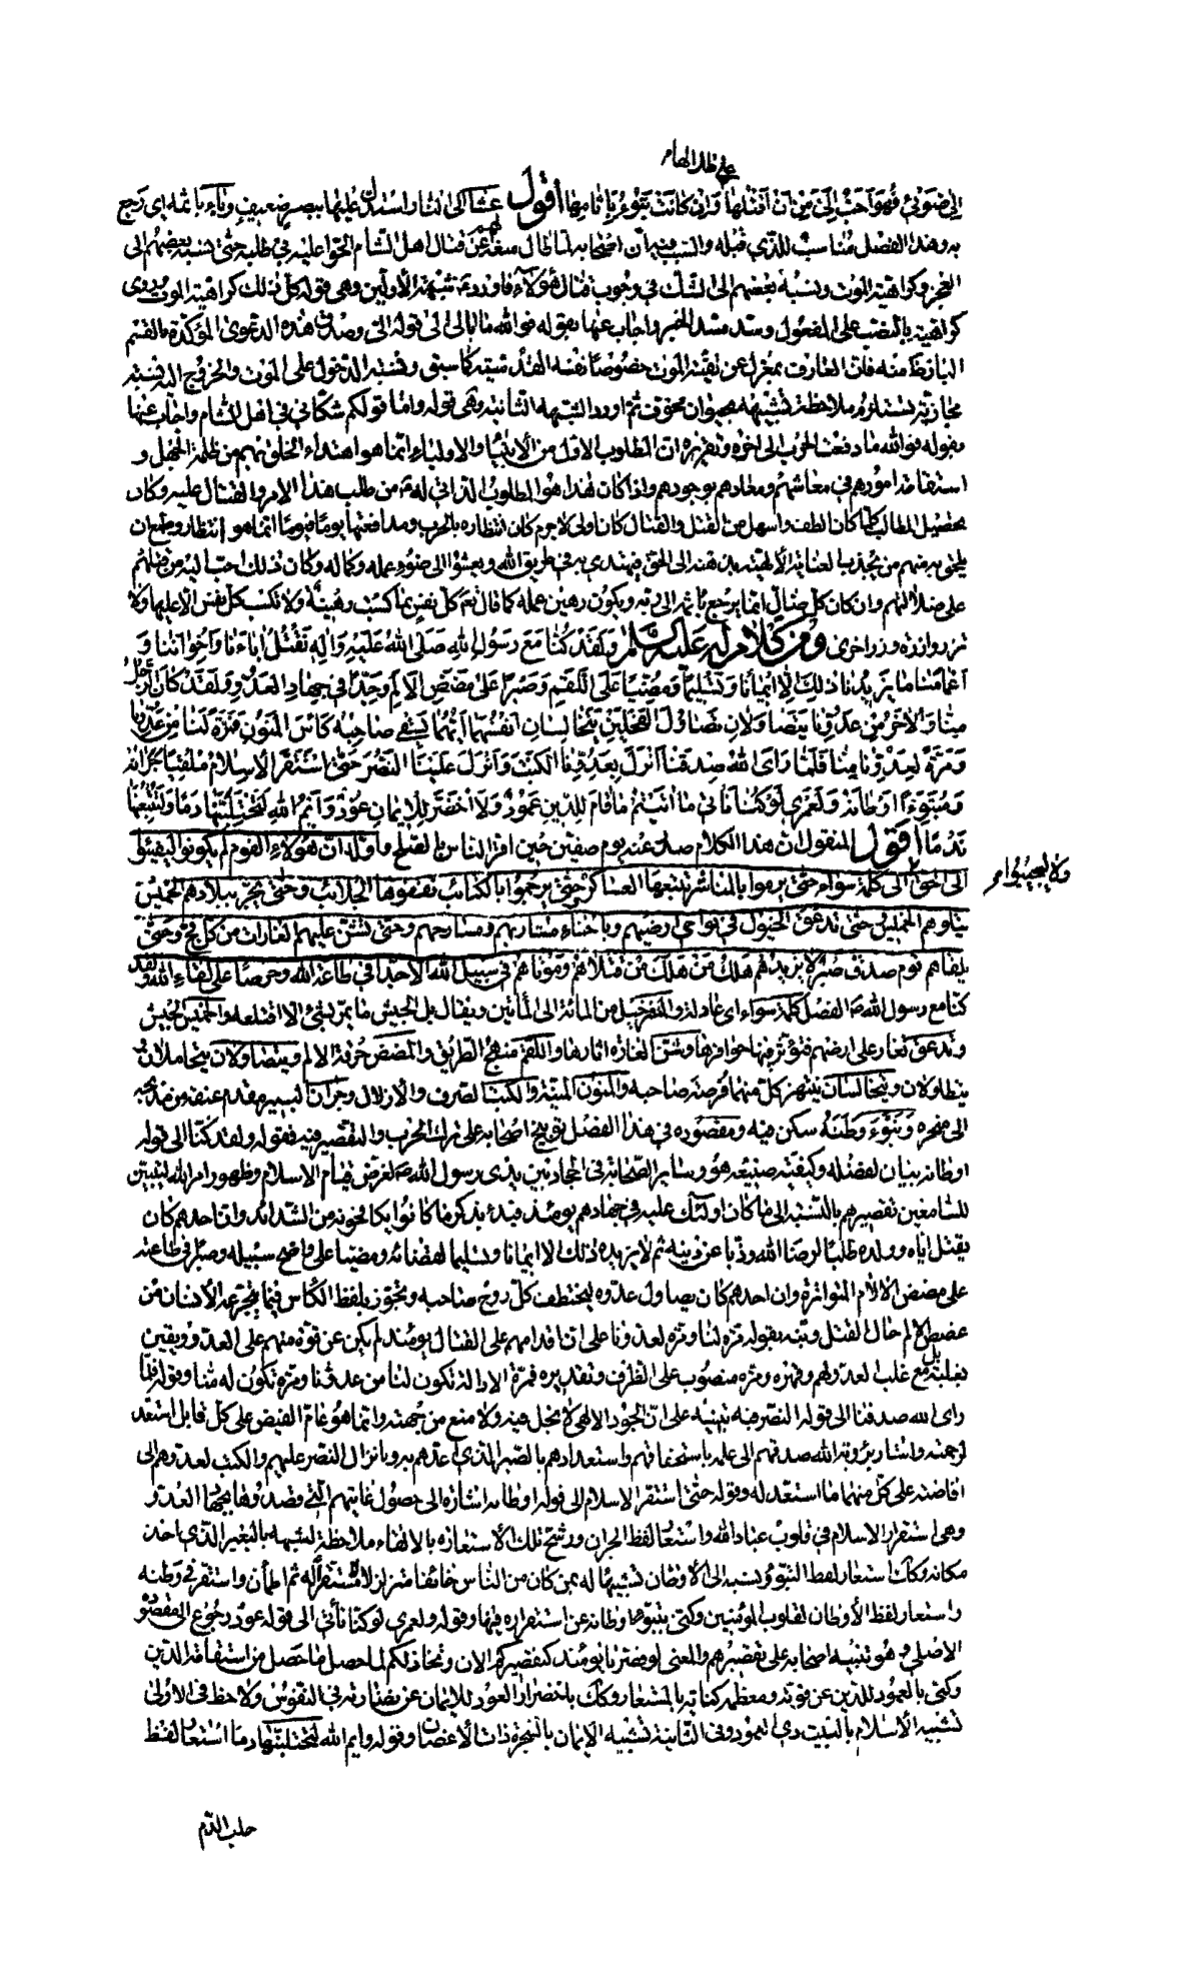 على ضلالها م
الى ضوئي فهو احب الي من ان اقتلها وان كانت تبوء باثامها اقول عشا الى النار استدل عليها ببصر ضعيف وباء باثمه اى رجع
به وهذا الفصل مناسب للذي قبله والسبب فيه ان اصحابه لما طال منعه لهم عن قتال اهل الشام الحوا عليه في طلبه حتى نسبه بعضهم الى
العجز وكراهية الموت ونسبه بعضهم الى الشك في وجوب قتال هؤلاء فاورد شبهة الأولين وهى قوله اكل ذلك كراهية الموت وروى
كراهية بالنصب على المفعول وسد مسد الخبر واجاب عنها بقوله فوالله ما ابالى الى قوله الى وصدق هذه الدعوى المؤكدة بالقسم
البار ظ منه فان العارف بمعزل عن تقية الموت خصوصا نفسه القدسية كما سبق ونسبة الدخول على الموت والخروج اليه نسبة
مجازية تستلزم ملاحظة تشبيهه بحيوان مخوف ثم اورد الشبهة الثانية وهى قوله واما قولكم شكا في اهل الشام واجاب عنها
بقوله فوالله ما دفعت الحرب الى اخره وتقريره ان المطلوب الاول من الأنبياء والاولياء انما هو اهتداء الخلق بهم من ظلمة الجهل و
استقامة امورهم في معاشهم ومعادهم بوجودهم واذا كان هذا هو المطلوب الذاتى له من طلب هذا الامر والقتال عليه وكان
تحصيل المطالب كلما كان الطف واسهل من القتل والقتال كان اولى لا جرم كان انتظاره بالحرب ومدافعتها يوما فيوما انما هو انتظار وطمع ان
يلحق به منهم من تجذبه العناية الألهية بذهنه الى الحق فيهتدى به في طريق الله ويعشوا الى ضوء علمه وكماله وكان ذلك احب اليه من قتلهم
على ضلالهم وان كان كل ضال انما يرجع باثمه الى ربه ويكون رهين عمله كما قال تع كل نفس بما كسبت رهينة ولا تكسب كل نفس الا عليها ولا
تزر وازرة وزر اخرى ومن كلام له عليه السلام ولقد كنا مع رسول الله صلى الله عليه واله نقتل اباءنا واخواننا و
اعمامنا ما يزيدنا ذلك الا ايمانا وتسليما ومضيا على اللقم وصبرا على مضض الالم وجدا في جهاد العدو ولقد كان الرجل
منا والاخر من عدونا يتصاولان تصاول الفحلين يتخالسان انفسهما ايهما يسقى صاحبه كاس المنون فمرة لنا من عدونا
ومرة لعدونا منا فلما راى الله صدقنا انزل بعدونا الكبت وانزل علينا النصر حتى استقر الاسلام ملقيا جرانه
ومتبوءا اوطانه ولعمري لو كنا ناتي ما اتيتم ما قام للدين عمود ولا اخضر للايمان عود وايم الله لتحتلبنها دما ولتتبعنها
ندما اقول المنقول ان هذا الكلام صدر عنه يوم صفين حين اقر الناس بالصلح واوله ان هؤلاء القوم لم يكونوا ليفيئوا
ولا ليجيبوا م
الى الحق الى كلمة سواء حتى يرموا بالمناشر تتبعها العساكر حتى يرجموا بالكتائب تقفوها الجلائب وحتى يجر ببلادهم الخميس
يتلوهم الخميس حتى تدعق الخيول في نواحى ارضهم وباحناء مشاربهم ومسارحهم وحتى تشن عليهم الغارات من كل فج وحتى
يلقاهم قوم صدق صبر لا يزيدهم هلاك من هلك من قتلاهم وموتاهم في سبيل الله الا جدا في طاعة الله وحرصا على لقاء الله ولقد
كنا مع رسول الله ص الفصل كلمة سواء اى عادلة والمنسر خيل من المائة الى المأتين ويقال بل الجيش ما يمر بشئ الا اقتلعه والخميس الجيش
وتدعق تغار على ارضهم فتؤثر فيها حوافرها وشن الغارة اثارها واللقم منهج الطريق والمضض حرقة الالم ويتصاولان يتحاملان و
يتطاولان ويتخالسان ينتهز كل منهما فرصة صاحبه والمنون المنية والكبت الصرف والاذلال وجران البعير مقدم عنقه من مذبحه
الى منحره وتبوء وطنه سكن فيه ومقصوده في هذا الفصل توبيخ اصحابه على ترك الحرب والتقصير فيه فقوله ولقد كنا الى قوله
اوطانه بيان لفضله وكيفية صنيعه هو وساير الصحابة في الجهاد بين يدى رسول الله ص لغرض قيام الاسلام وظهور امر الله ليتبين
للسامعين تقصيرهم بالنسبة الى ما كان اولئك عليه في جهادهم يومئذ فبدء بذكر ما كانوا يكابدونه من الشدائد وان احدهم كان
يقتل اباه وولده طلبا لرضا الله وذبا عن دينه ثم لا يزيده ذلك الا ايمانا وتسليما لقضائه ومضيا على واضح سبيله وصبرا في طاعته
على مضض الالام المتواترة وان احدهم كان يصاول عدوه ليختطف كل روح صاحبه وتجوز بلفظ الكأس فيما يتجرعه الأنسان من
غصص الالم حال القتل ونبه بقوله مرة لنا ومرة لعدونا على ان اقدامهم على القتال يومئذ لم يكن عن قوة منهم على العدو ويقين
بغلبته بل مع غلب العدو لهم وقهره ومرة منصوب على الظرف وتقديره فمرة الادالة تكون لنا من عدونا ومرة تكون له منا وقوله فلما
راى الله صدقنا الى قوله النصر فيه تنبيه على ان الجود الالهى لا بخل فيه ولا منع من جهته وانما هو عام الفيض على كل قابل استعد
لرحمته واشار برؤية الله صدقهم الى علمه باستحقاقهم واستعدادهم بالصبر الذي اعدهم به وبانزال النصر عليهم والكبت لعدوهم الى
افاضته على كل منهما ما استعد له وقوله حتى استقر الاسلام الى قوله اوطانه اشارة الى حصول غايتهم التي قصدوها بجهاد العدو
وهي استقرار الاسلام في قلوب عباد الله واستعار لفظ الجران ورشح تلك الأستعارة بالالقاء ملاحظة لشبهه بالبعير الذي اخذ
مكانه وكذا استعار لفظ التبوء ونسبه الى الأوطان تشبيها له بمن كان من الناس خائفا متزلزلا لا مستقر له ثم اطمأن واستقر في وطنه
واستعار لفظ الأوطان لقلوب المؤمنين وكنى بتبوء اوطانه عن استقراره فيها وقوله ولعمري لو كنا ناتى الى قوله عود رجوع الى المقصود
الاصلي وهو تنبيه اصحابه على تقصيرهم والمعنى لو قصرنا يومئذ كتقصيركم الان وتخاذلكم لما حصل ما حصل من استقامة الدين
وكنى بالعمود للدين عن قوته ومعظمه كناية بالمستعار وكذا باخضرار العود للايمان عن نضارته في النفوس ولاحظ في الاولى
تشبيه الأسلام بالبيت ذي العمود وفى الثانية تشبيه الايمان بالشجرة ذات الأغصان وقوله وايم الله لتحتلبنها دما استعار لفظ
حلب الدم